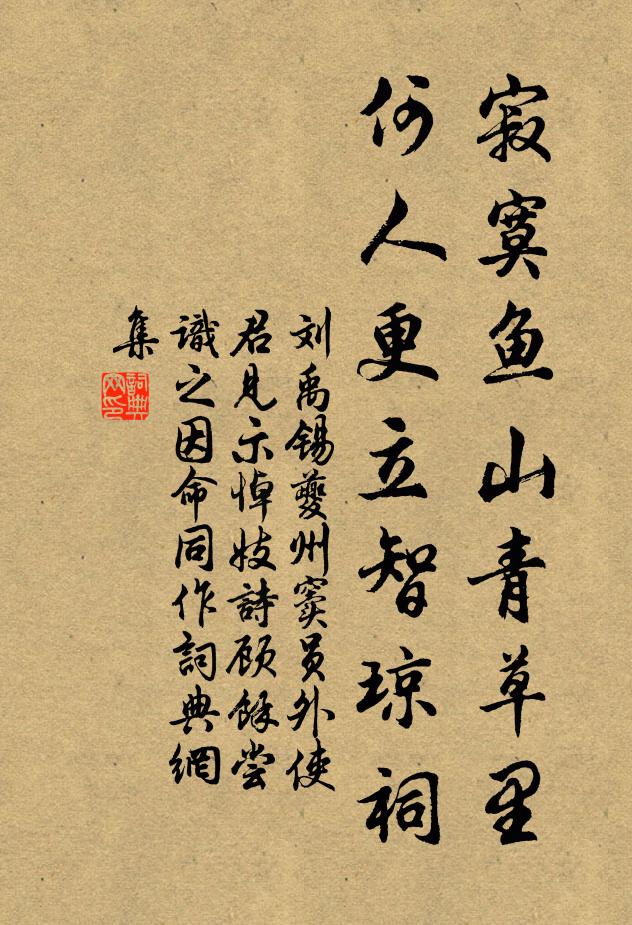 寂寞鱼山青草里
何人更立智琼祠
刘禹锡夔州窦员外使
君見示悼妓詩顾餘尝
識之因命同作詞典網
集
詞典網印